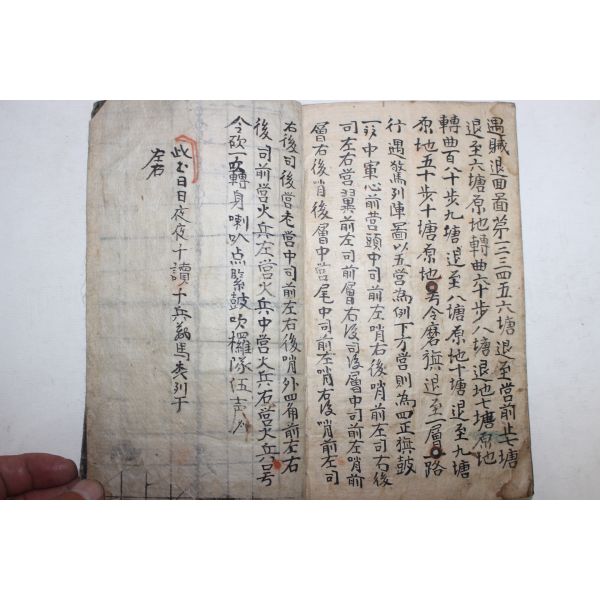 遇賊退面圖第一二三四五六塘退至營前七塘
退至六塘原地轉曲六十步八塘退地七塘原地
轉曲百八十步九塘退至八塘原地十塘退至九塘
原地五十步十塘原地 号令磨旗退至一層 路
行遇驚列陣圖以五營為例下方營則為四正旗鼓
中軍心前營頭中司前左哨右後哨前左司右後
司左右營翼前左司前層右後司後層中司前左哨前
層右後哨後層中營尾中司前左哨右後哨前左司
右後司後營老營中司前左右後哨外四角前左右
後司前營火兵左營火兵中營火兵右營火兵号
令砍 轉身喇叭点緊鼓吹擺隊伍声
此 日日夜夜千讀 千兵萬馬 列于
左右